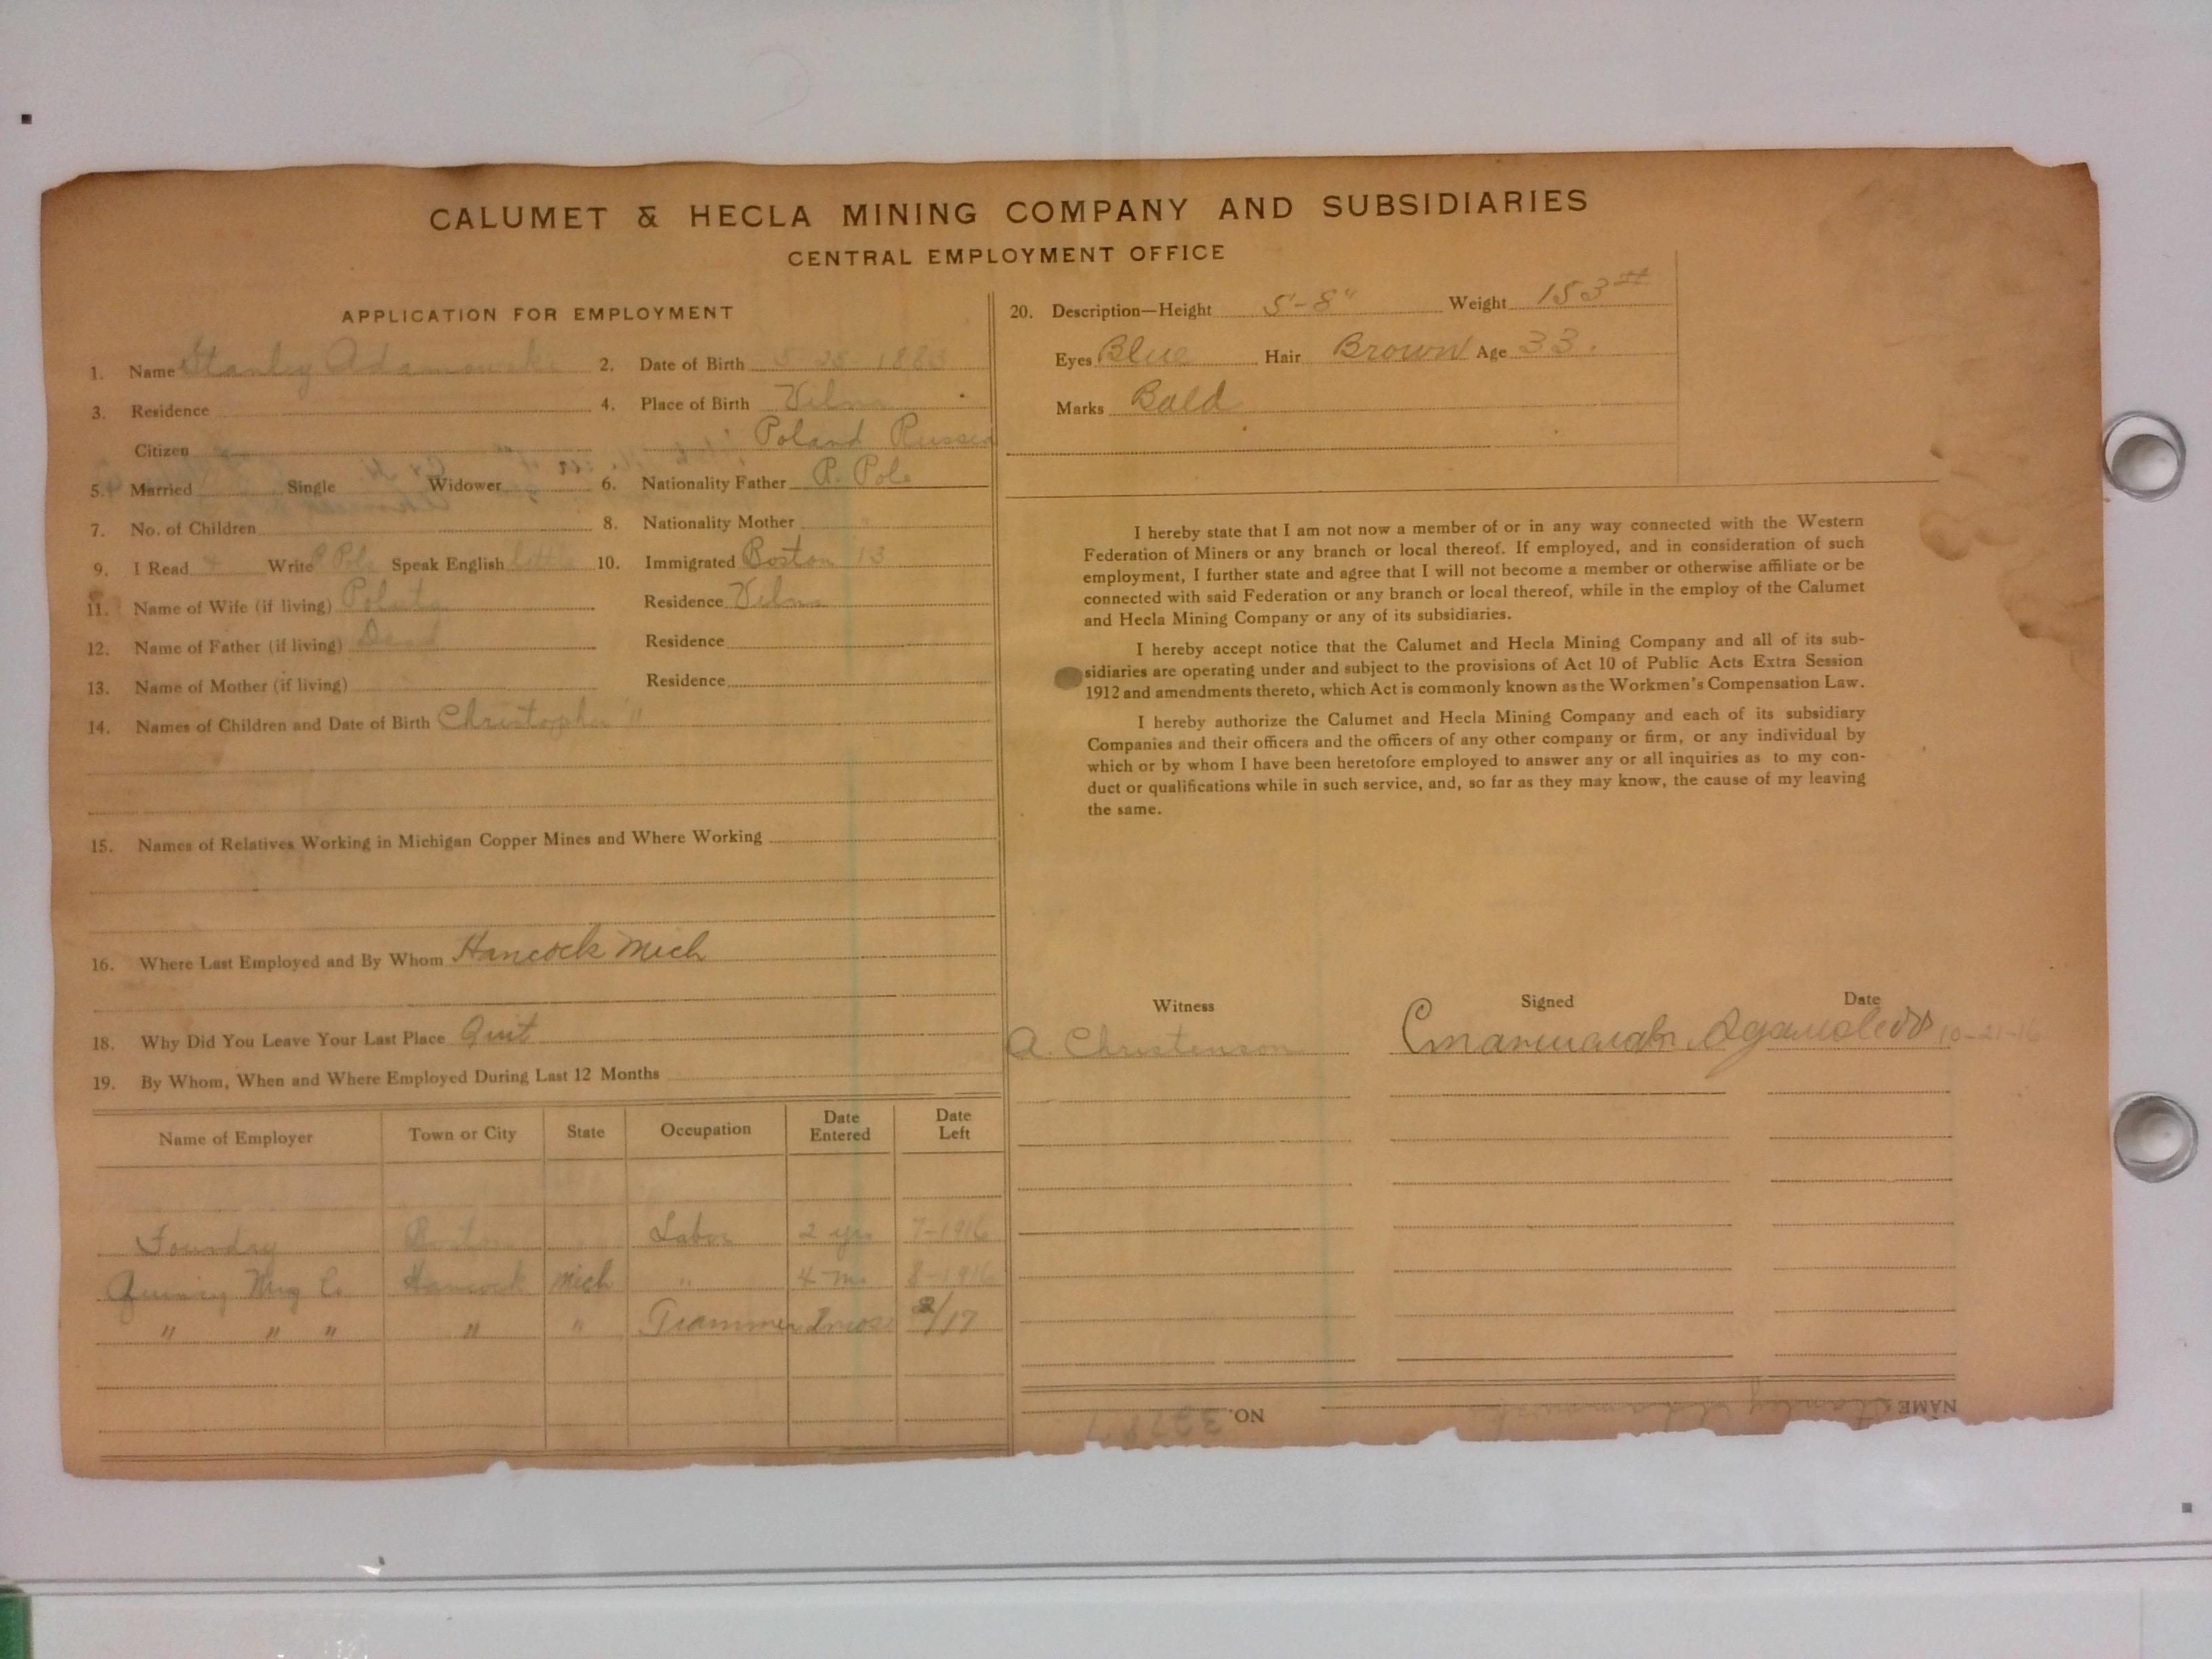 CALUMET & HECLA MINING COMPANY AND SUBSIDIARIES
CENTRAL EMPLOYMENT OFFICE
APPLICATION FOR EMPLOYMENT
1. Name Stanley Adamowski 2. Date of Birth 5 28 1883
3. Residence 4. Place of Birth Vilna
Citizen Poland Russia
5. Married Single Widower 6. Nationality Father R. Pole
7. No. of Children 8. Nationality Mother
9. I Read Write Pole Speak English little 10. Immigrated Boston 13
11. Name of Wife (if living) Residence Vilna
12. Name of Father (if living) Dead Residence
13. Name of Mother (if living) Residence
14. Names of Children and Date of Birth Christopher
15. Names of Relatives Working in Michigan Copper Mines and Where Working
16. Where Last Employed and By Whom Hancock Mich
18. Why Did You Leave Your Last Place Quit
19. By Whom, When and Where Employed During Last 12 Months
Name of Employer Town or City State Occupation Date Entered Date Left
Foundry Boston Labor 2 yrs 7-1916
Quincy Mng Co Hancock Mich " 4 m. 8-1916
" " " " " Trammer 2 mos 2/17
20. Description—Height 5'-8" Weight 153#
Eyes Blue Hair Brown Age 33.
Marks Bald
I hereby state that I am not now a member of or in any way connected with the Western
Federation of Miners or any branch or local thereof. If employed, and in consideration of such
employment, I further state and agree that I will not become a member or otherwise affiliate or be
connected with said Federation or any branch or local thereof, while in the employ of the Calumet
and Hecla Mining Company or any of its subsidiaries.
I hereby accept notice that the Calumet and Hecla Mining Company and all of its sub-
sidiaries are operating under and subject to the provisions of Act 10 of Public Acts Extra Session
1912 and amendments thereto, which Act is commonly known as the Workmen's Compensation Law.
I hereby authorize the Calumet and Hecla Mining Company and each of its subsidiary
Companies and their officers and the officers of any other company or firm, or any individual by
which or by whom I have been heretofore employed to answer any or all inquiries as to my con-
duct or qualifications while in such service, and, so far as they may know, the cause of my leaving
the same.
Witness Signed Date
A. Christenson 10-21-16
NAME Stanley Adamowski NO.